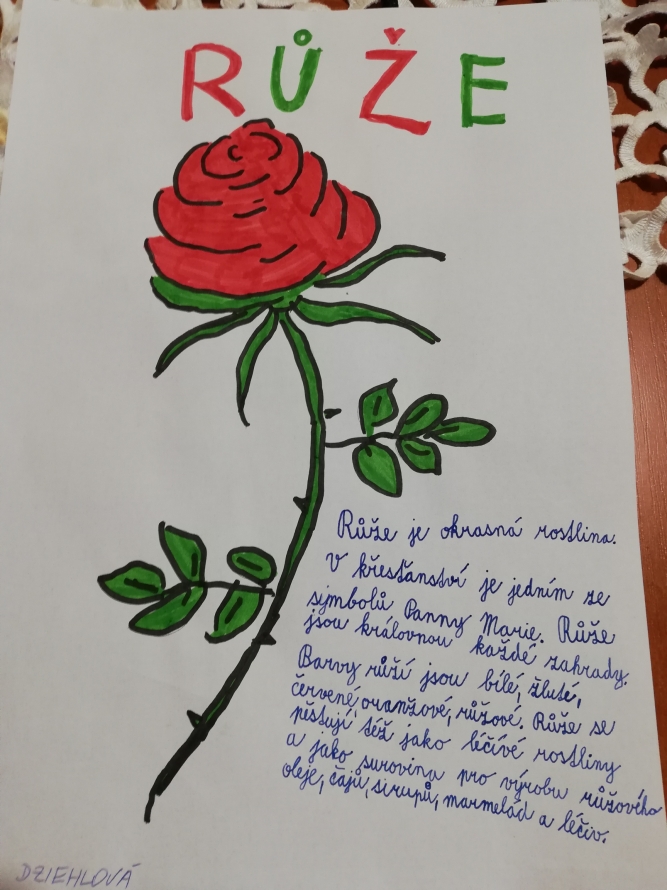 RŮŽE
Růže je okrasná rostlina.
V křesťanství je jedním ze
symbolů Panny Marie. Růže
jsou královnou každé zahrady.
Barvy růží jsou bílé, žluté,
červené, oranžové, růžové. Růže se
pěstují též jako léčivé rostliny
a jako surovina pro výrobu růžového
oleje, čajů, sirupů, marmelád a léčiv.
DZIEHLOVÁ